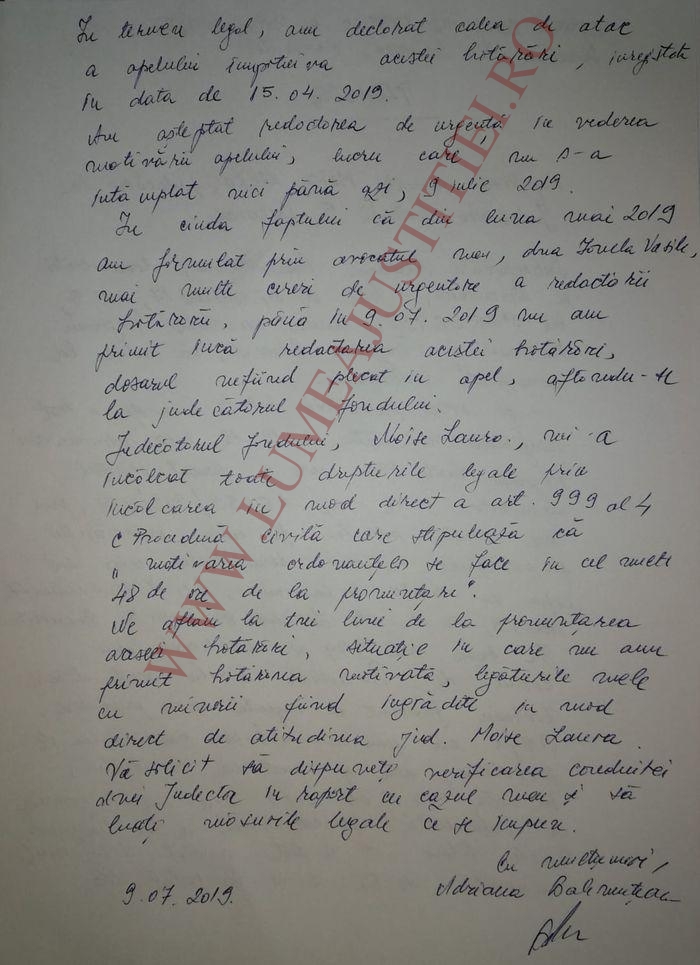 În termen legal, am declarat calea de atac
a apelului împotriva acestei hotărâri, înregistrată
în data de 15.04.2019.
Am așteptat redactarea de urgență în vederea
motivării apelului, lucru care, nu s-a
întâmplat nici până azi, 9 iulie 2019.
În ciuda faptului că din luna mai 2019
am formulat prin avocatul meu, dna Ionela Vasile,
mai multe cereri de urgentare a redactării
hotărârii, până în 9.07.2019 nu am
primit încă redactarea acestei hotărâri,
dosarul nefiind plecat în apel, aflându-se
la judecătorul fondului.
Judecătorul fondului, Moise Laura, mi-a
încălcat toate drepturile legale prin
încălcarea în mod direct a art. 999 al 4
C Procedură civilă care stipulează că
„motivarea ordonanțelor se face în cel mult
48 de ore de la pronunțare".
Ne aflăm la trei luni de la pronunțarea
acestei hotărâri, situație în care nu am
primit hotărârea motivată, legăturile mele
cu minorii fiind îngrădite în mod
direct de atitudinea jud. Moise Laura.
Vă solicit să dispuneți verificarea conduitei
dnei Judecător în raport cu cazul meu și să
luați măsurile legale ce se impun.
Cu mulțumiri,
9.07.2019. Adriana
WWW.LUMEAJUSTITIEI.RO